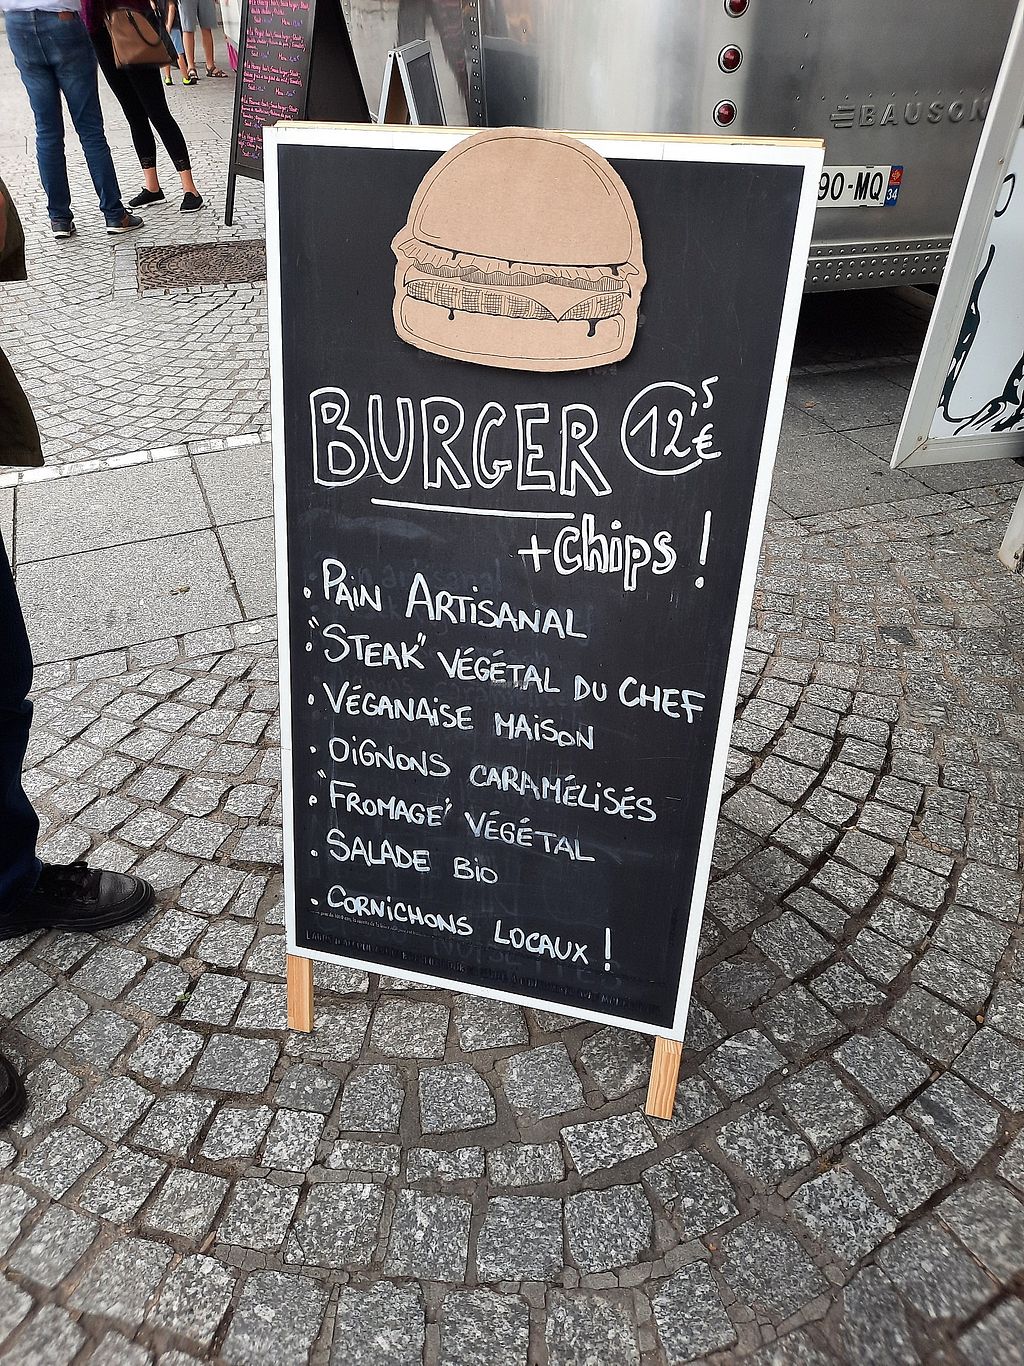 BAUSON
90-MQ
34
BURGER 12'5€
+ chips !
. PAIN ARTISANAL
. "STEAK" VÉGÉTAL DU CHEF
. VÉGANAISE MAISON
. OIGNONS CARAMÉLISÉS
. "FROMAGE" VÉGÉTAL
. SALADE BIO
. CORNICHONS LOCAUX !